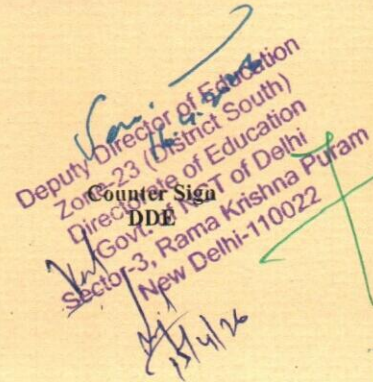 Deputy Director of Education
Zone-23 (District South)
Directorate of Education
Govt. of NCT of Delhi
Sector-3, Rama Krishna Puram
New Delhi-110022
Counter Sign
DDE
15/4/26